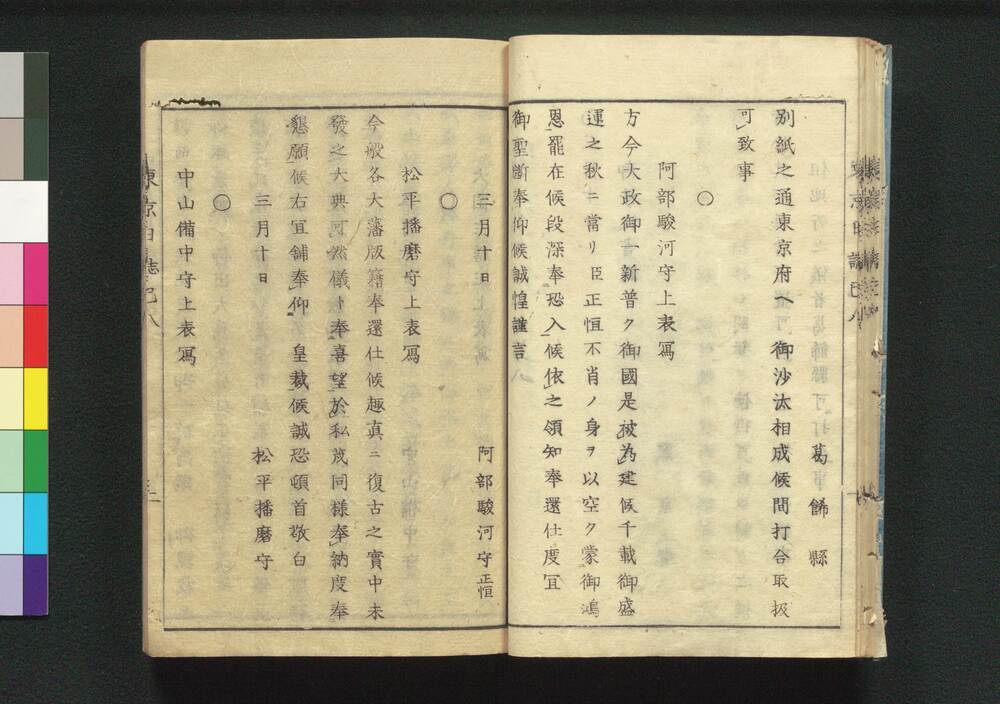 葛飾縣
別紙之通東京府ヘ御沙汰相成候間打合取扱
可致事
○
阿部駿河守上表寫
方今大政御一新普ク御國是被為建候千載御盛
運之秋ニ當リ臣正恒不肖ノ身ヲ以空ク蒙御鴻
恩罷在候段深奉恐入候依之領知奉還仕度冝
御聖斷奉仰候誠惶謹言
三月十日 阿部駿河守正恒
○
松平播磨守上表寫
今般各大藩版籍奉還仕候趣真ニ復古之實中未
發之大典可然儀ト奉喜望於私茂同様奉納度奉
懇願候右冝舗奉仰 皇裁候誠恐頓首敬白
三月十日 松平播磨守
○
中山備中守上表寫
東京日誌 己八